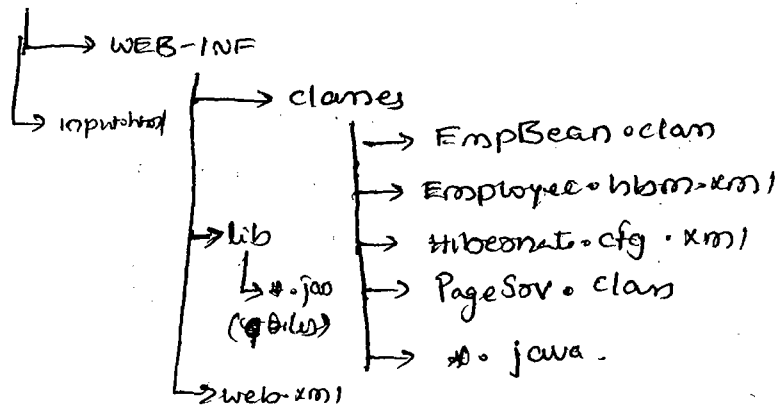 WEB-INF
input.html
classes
EmpBean.class
Employee.hbm.xml
Hibernate.cfg.xml
lib
*.jar
PageSrv.class
files)
*.java.
web.xml